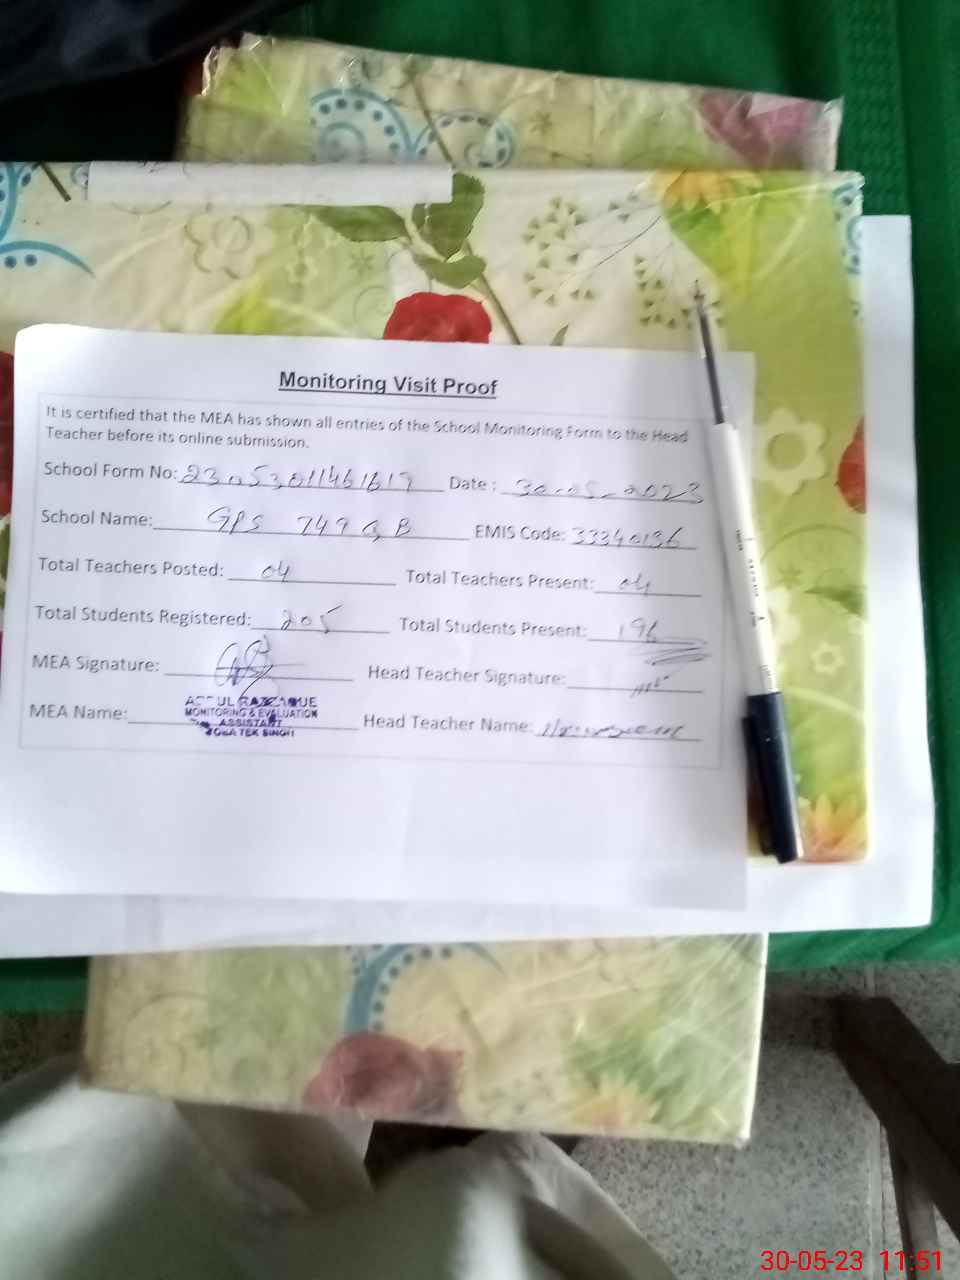 Monitoring Visit Proof
It is certified that the MEA has shown all entries of the School Monitoring Form to the Head
Teacher before its online submission.
School Form No: Date: 30-05-2023
School Name: GPS 749 GB EMIS Code: 33340136
Total Teachers Posted: 04 Total Teachers Present: 04
Total Students Registered: 205 Total Students Present: 196
MEA Signature: Head Teacher Signature:
MEA Name: Head Teacher Name:
MONITORING & EVALUATION
ASSISTANT
TEK SINGH
30-05-23 11:51